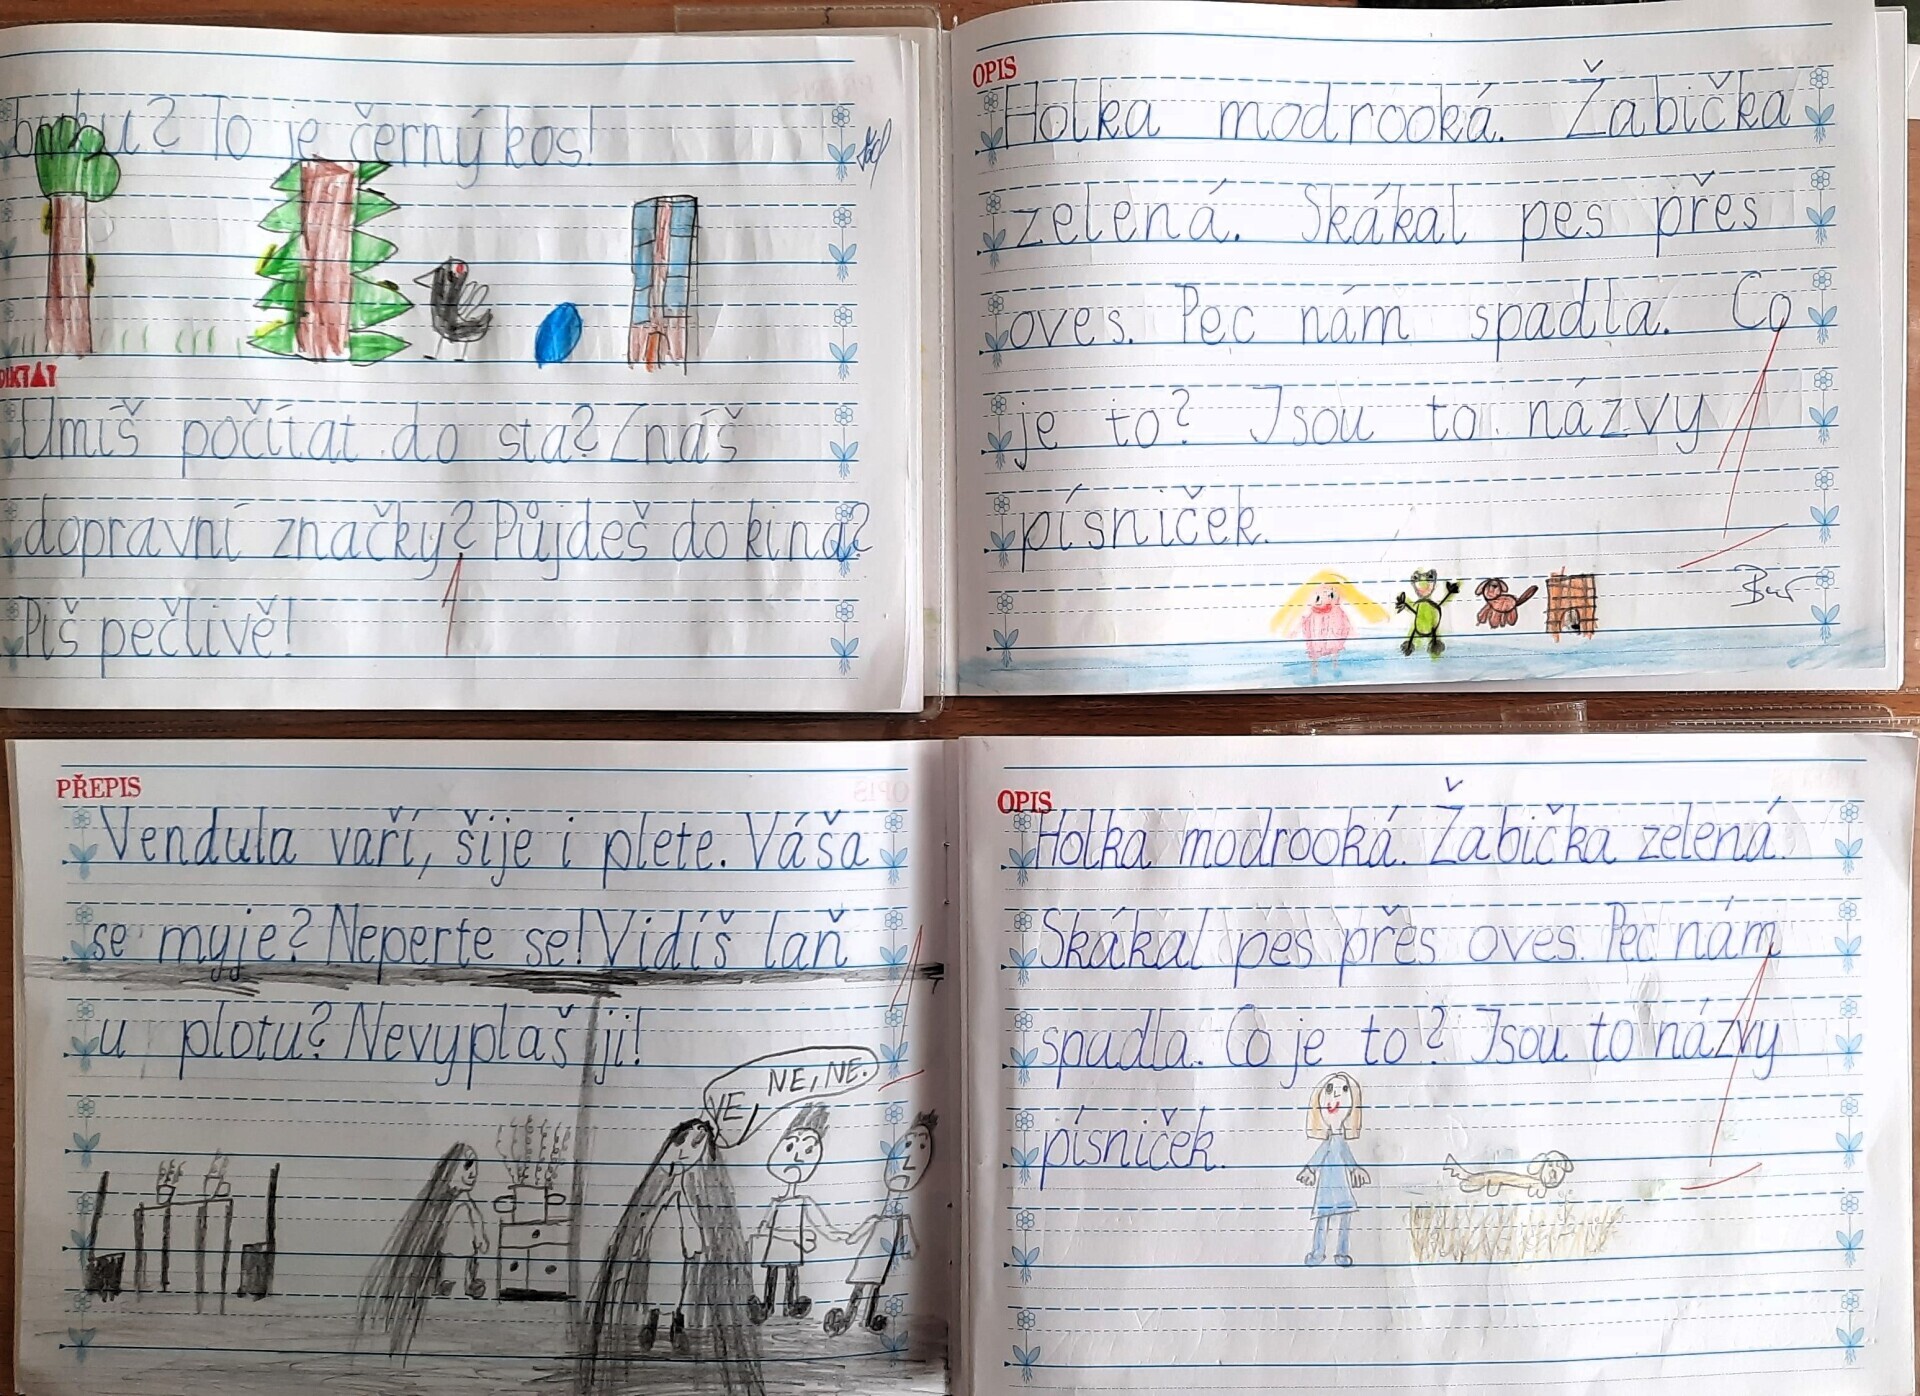 To je černý kos!
DIKTÁT
Umíš počítat do sta? Znáš
dopravní značky? Půjdeš do kina?
Piš pečlivě!
OPIS
Holka modrooká. Žabička
zelená. Skákal pes přes
oves. Pec nám spadla. Co
je to? Jsou to názvy
písniček.
PŘEPIS
Vendula vaří, šije i plete. Váša
se myje? Neperte se! Vidíš laň
u plotu? Nevyplaš ji!
NE, NE.
VE,
OPIS
Holka modrooká. Žabička zelená.
Skákal pes přes oves. Pec nám
spadla. Co je to? Jsou to názvy
písniček.